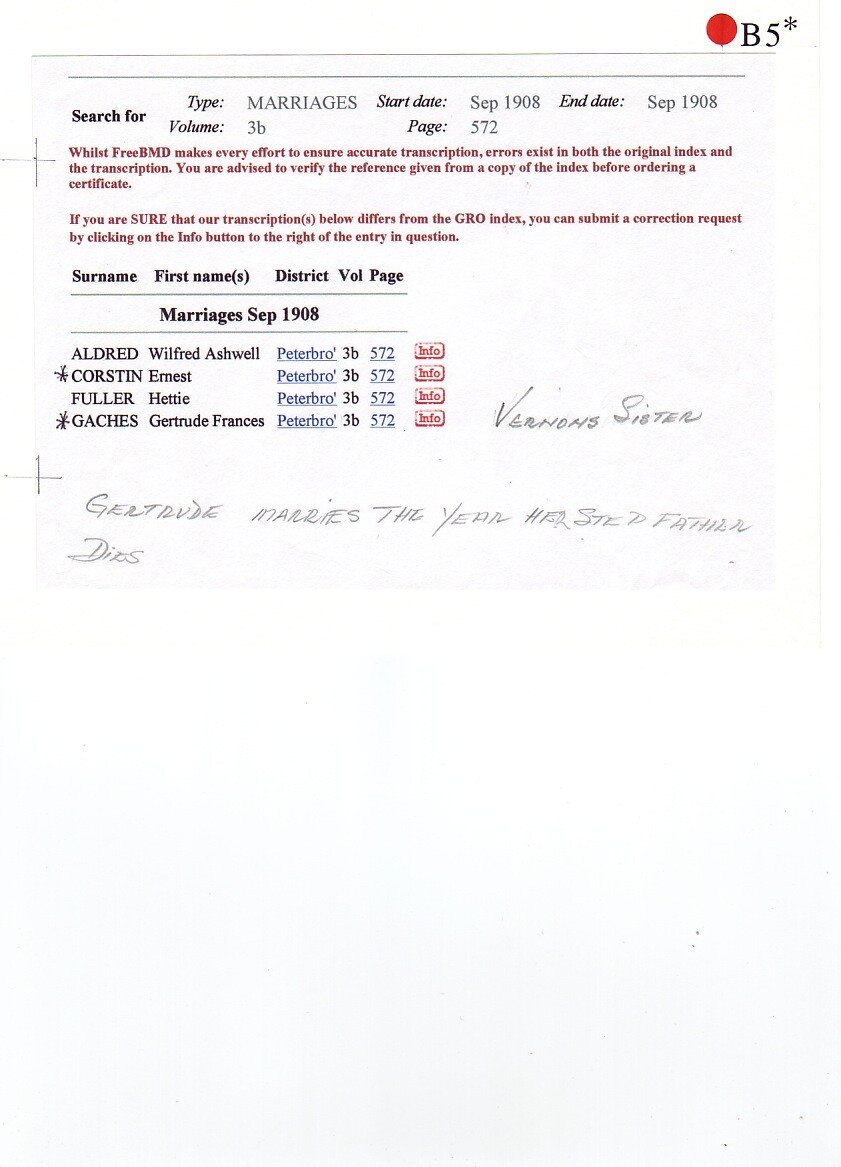 B5*
Search for Type: MARRIAGES Start date: Sep 1908 End date: Sep 1908
Volume: 3b Page: 572
Whilst FreeBMD makes every effort to ensure accurate transcription, errors exist in both the original index and
the transcription. You are advised to verify the reference given from a copy of the index before ordering a
certificate.
If you are SURE that our transcription(s) below differs from the GRO index, you can submit a correction request
by clicking on the Info button to the right of the entry in question.
Surname First name(s) District Vol Page
Marriages Sep 1908
ALDRED Wilfred Ashwell Peterbro' 3b 572 Info
* CORSTIN Ernest Peterbro' 3b 572 Info
FULLER Hettie Peterbro' 3b 572 Info
* GACHES Gertrude Frances Peterbro' 3b 572 Info VERNONS SISTER
GERTRUDE MARRIES THE YEAR HER STEP FATHER
DIES